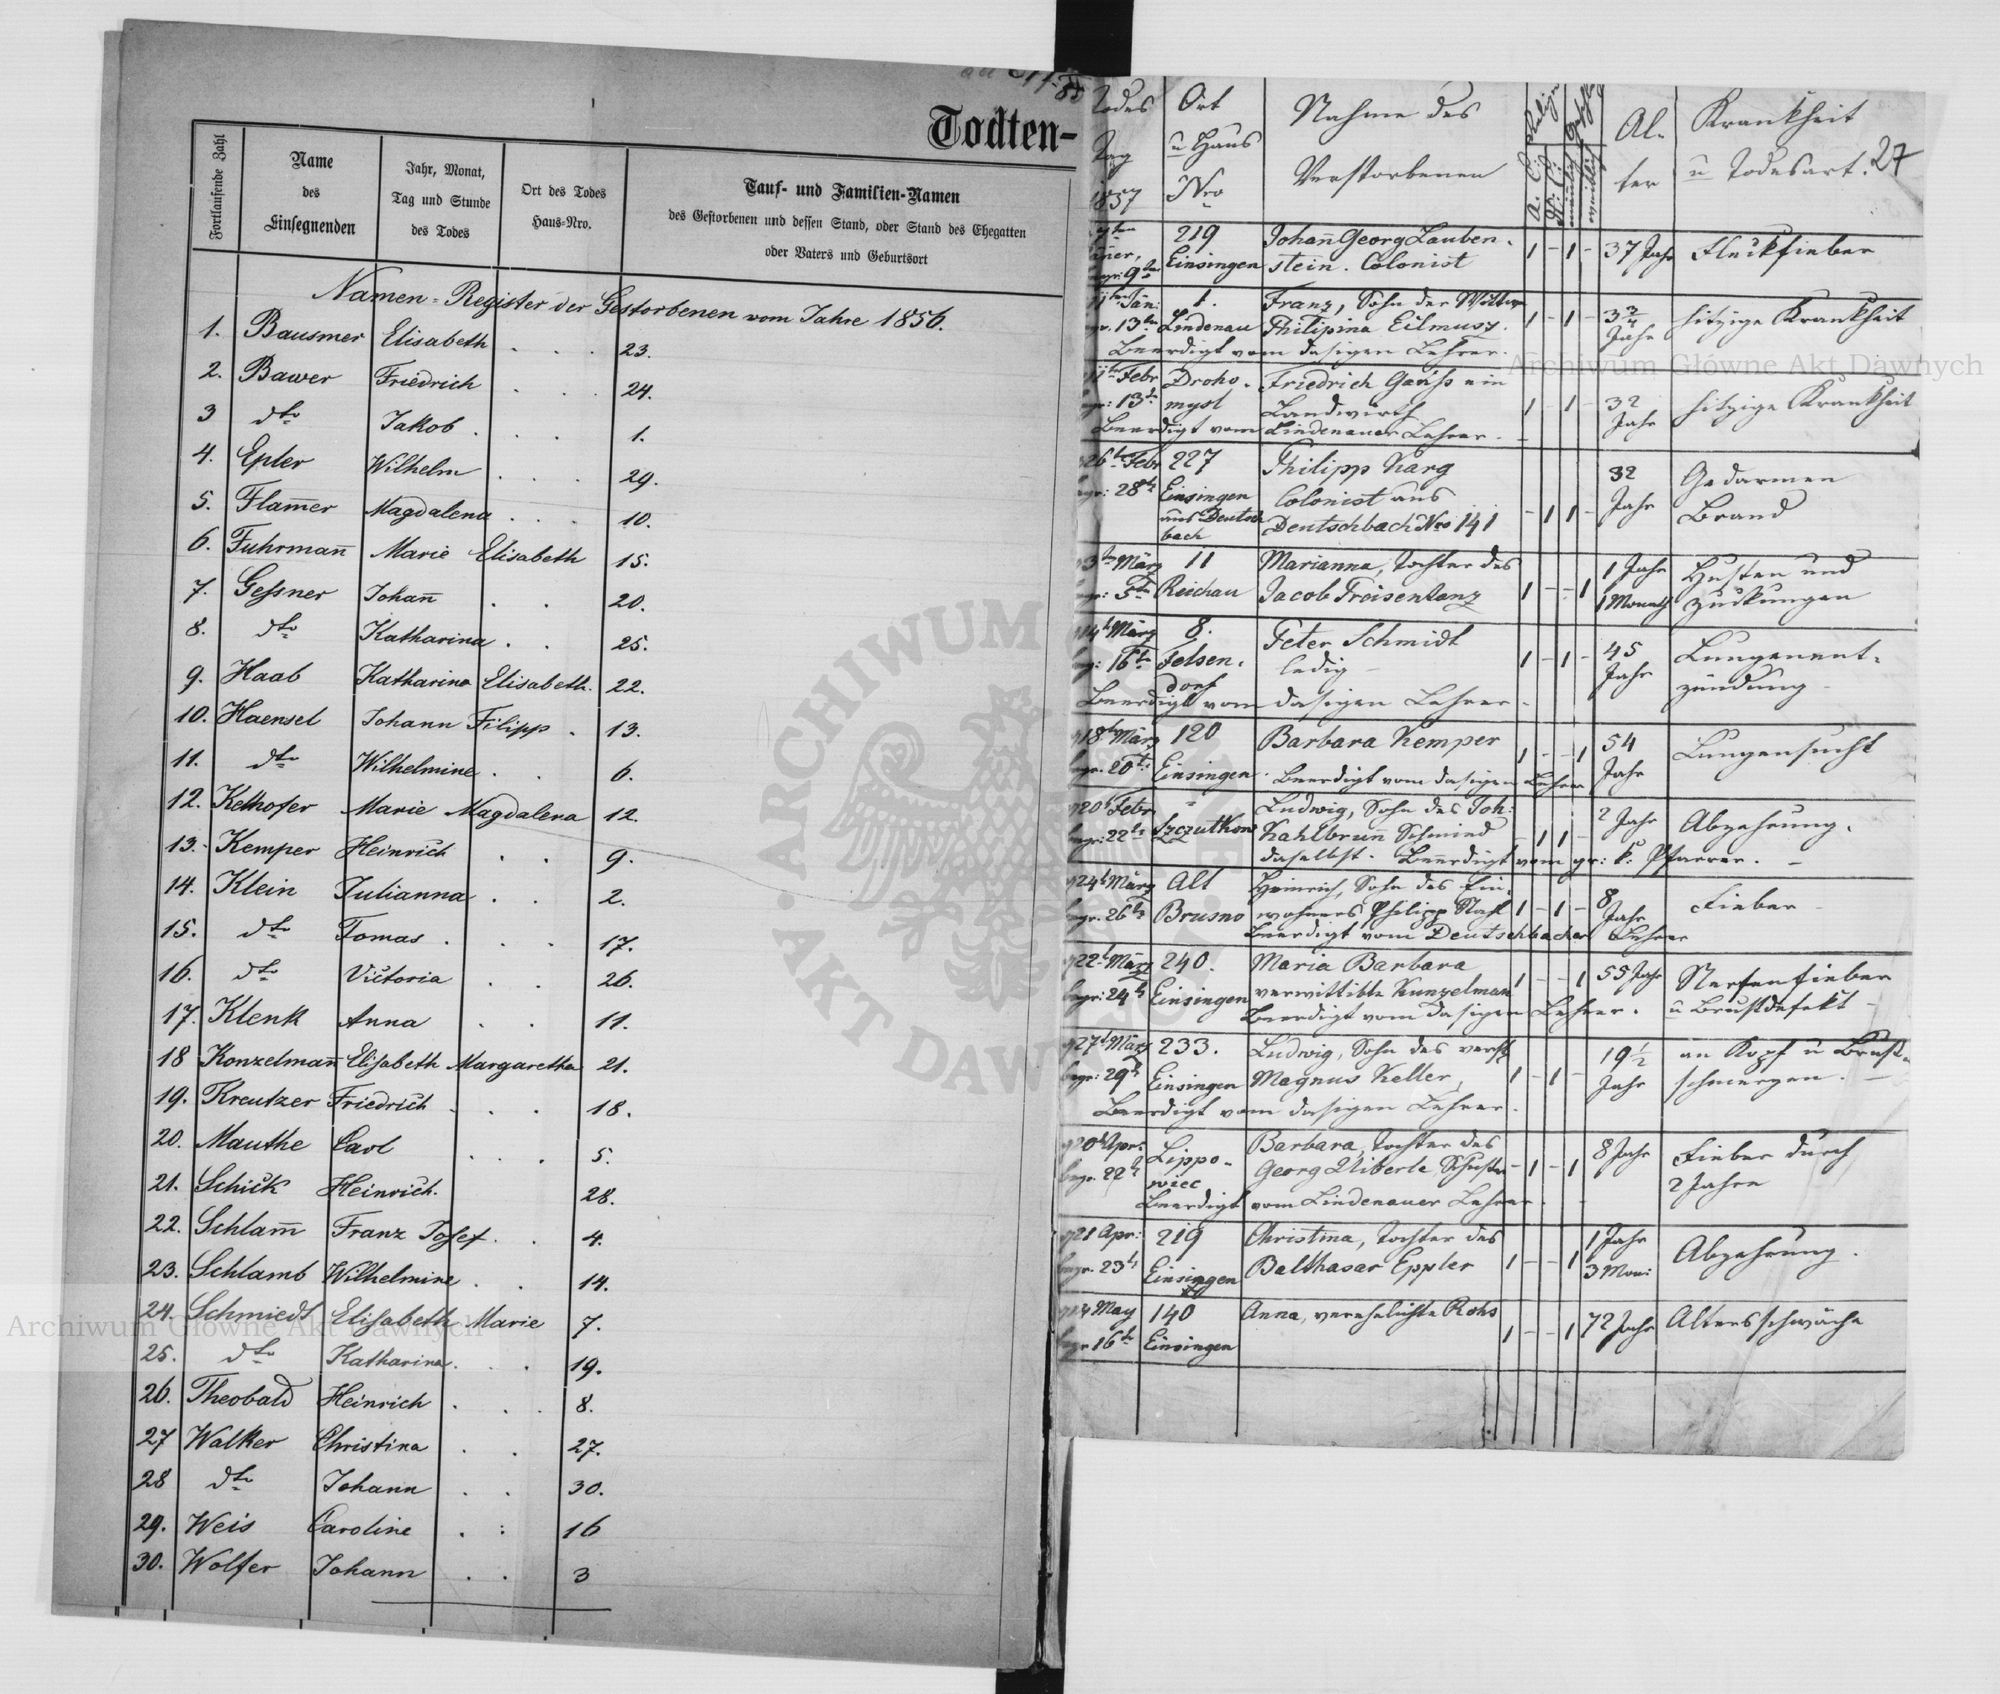 Todten-
Fortlaufende Zahl
Name
des
Einsegnenden
Jahr, Monat,
Tag und Stunde
des Todes
Ort des Todes
Haus-Nro.
Tauf- und Familien-Namen
des Gestorbenen und dessen Stand, oder Stand des Ehegatten
oder Vaters und Geburtsort
Namen-Register der Gestorbenen vom Jahre 1856.
1. Bausmer Elisabeth . . . 23.
2. Bawer Friedrich . . . 24.
3 dto Jakob . . . 1.
4. Epler Wilhelm . . . 29.
5. Flam̅er Magdalena . . . 10.
6. Fuhrman̅ Marie Elisabeth 15.
7. Gessner Johan̅ . . 20.
8. dto Katharina . . 25.
9. Haab Katharina Elisabeth. 22.
10. Haensel Johann Filipp . 13.
11. dto Wilhelmine . . 6.
12. Kelhofer Marie Magdalena 12.
13. Kemper Heinrich . . 9.
14. Klein Julianna . . 2.
15. dto Tomas . . . 17.
16. dto Victoria . . 26.
17. Klenk Anna . . 11.
18 Konzelman̅ Elisabeth Margaretha 21.
19. Kreutzer Friedrich . . . 18.
20. Mauthe Carl . . . 5.
21. Schick Heinrich. 28.
22. Schlam̅ Franz Josef . . 4.
23. Schlamb Wilhelmine . . 14.
24. Schmiedt Elisabeth Marie 7.
25. dto Katharina . . . 19.
26. Theobald Heinrich . . . 8.
27 Walker Christina . . 27.
28 dto Johann . . 30.
29. Weis Caroline . : 16
30. Wolfer Johann . . 3
Todes
Tag
1857
Ort
u Haus
Nro
Nahme des
Verstorbenen
Al-
ter
Krankheit
u Todesart. 27
219 Johan̅ Georg Lauben- 1 - 1 - 37 Jahr Fleckfieber
Einsingen stein. Colonist
1. Franz, Sohn der Witwe 1 - 1 - 3 3/4 hitzige Krankheit
13ten Lindenau Philipina Eilmusy. Jahr
Beerdigt vom dasigen Lehrer.
Febr Droho- Friedrich ein 32 hitzige Krankheit
13t mysl Landwirth 1 - 1 - Jahr
Beerdigt vom Lindenauer Lehrer. -
26t Febr 227 Philipp Karg 32 Gedärmen
28t Einsingen Colonist aus Jahr Brand
aus Deutsch Deutschbach Nro 141 - 1 1 -
bach
3ten März 11 Marianna, Tochter des 1 Jahr Husten und
5t Reichau Jacob Froisentanz 1 - - 1 1 Monath zuckungen
14t März 8. Peter Schmidt 45 Lungenent-
16t Felsen- ledig 1 - 1 - Jahr zündung
dorf
Beerdigt vom dasigen Lehrer -
18t März 120 Barbara Kemper 1 - - 1 54 Lungensucht
begr. 20t Einsingen. Beerdigt vom dasigen Lehrer Jahr
20t Febr Ludwig, Sohn des Joh: 2 Jahr Abzehrung.
begr: 22t Szczutkow Kahlbrun̅ Schmied - 1 1 -
daselbst. Beerdigt vom gr: k: Pfarrer. -
24t März Alt Heinrich, Sohn des Ein- 8 Fieber
begr. 26t Brusno wohners Philipp Stahl 1 - 1 - Jahr
Beerdigt vom Deutschbacher Lehrer
22t März 240. Maria Barbara 1 - - 1 55 Jahr Nervenfieber
begr: 24t Einsingen verwittibte Kunzelman u Brustdefekt
Beerdigt vom dasigen Lehrer.
27t März 233. Ludwig, Sohn des verst 19 1/2 an Kopf u Brust-
begr: 29t Einsingen Magnus Keller, 1 - 1 - Jahr schmerzen. -
Beerdigt vom dasigen Lehrer.
20t Apr: Lippo- Barbara, Tochter des 8 Jahr Fieber durch
begr. 22t wiec Georg Schuster - 1 - 1 2 Jahre
Beerdigt vom Lindenauer Lehrer.
21 Apr: 219 Christina, Tochter des 1 Jahr Abzehrung.
begr. 23t Einsingen Balthasar Eppler 1 - - 1 3 Mon:
14 May 140 Anna, verehelichte Rohs 1 - - 1 72 Jahr Altersschwäche
begr 16t Einsingen
Archiwum Główne Akt Dawnych
Archiwum Główne Akt Dawnych